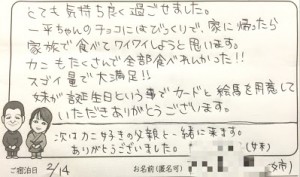 とても気持ち良く過ごせました。
一平ちゃんのチョコにはびっくりで、家に帰ったら
家族で食べてワイワイしようと思います。
カニもたくさんで全部食べれんかった!!
スゴイ量で大満足!!
妹が誕生日という事でカードと絵馬を用意して
いただきありがとうございます。
次はカニ好きの父親と一緒に来ます。
ありがとうございました。
ご宿泊日 2/14
お名前(匿名可)